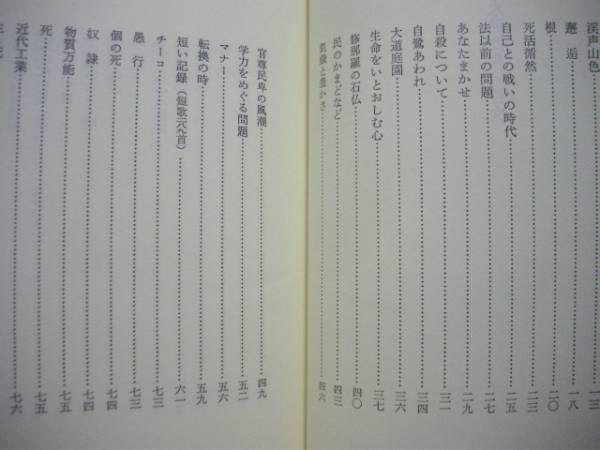 渓声山色……一三
邂逅……一八
根……二〇
死活循然……二三
自己との戦いの時代……二五
法以前の問題……二七
あなたまかせ……二九
自殺について……三一
自鷺あわれ……三四
大道庭園……三六
生命をいとおしむ心……三七
修那羅の石仏……四〇
民のかまどなど……四三
飢餓と豊かさ……四六
官尊民卑の風潮……四九
学力をめぐる問題……五二
マナー……五六
転換の時……五九
短い記録（短歌六八首）……六一
チーコ……七三
愚行……七三
個の死……七四
奴隷……七四
物質万能……七五
死……七五
近代工業……七六